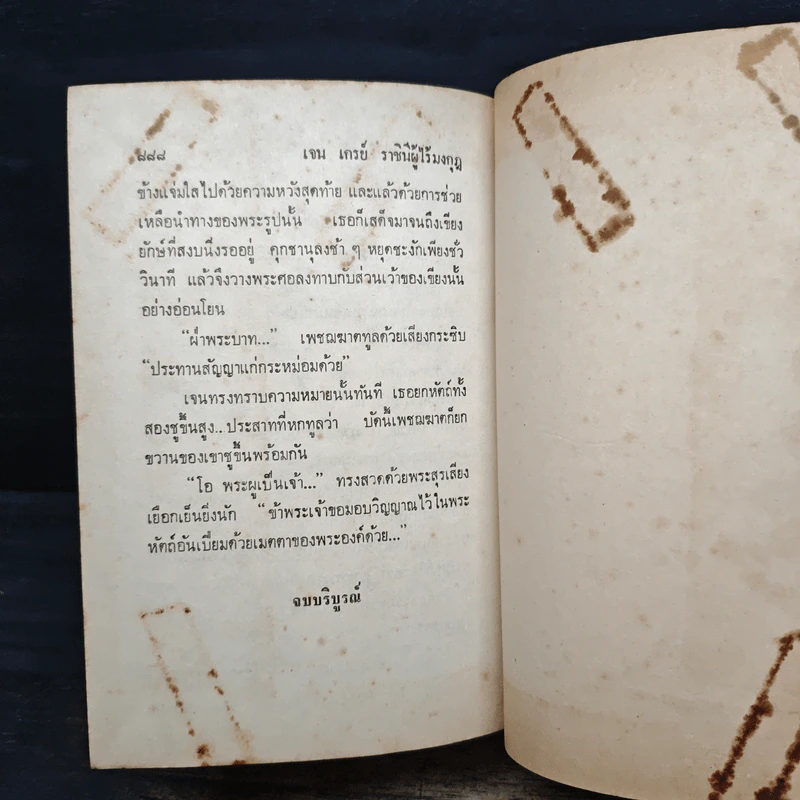 ๘๘๘ เจน เกรย์ ราชินีผู้ไร้มงกุฎ
ข้างแจ่มใสไปด้วยความหวังสุดท้าย และแล้วด้วยการช่วย
เหลือนำทางของพระรูปนั้น เธอก็เสด็จมาจนถึงเขียง
ยักษ์ที่สงบนิ่งรออยู่ คุกชานุลงช้า ๆ หยุดชะงักเพียงชั่ว
วินาที แล้วจึงวางพระศอลงทาบกับส่วนเว้าของเขียงนั้น
อย่างอ่อนโยน
“ฝ่าพระบาท...” เพชฌฆาตทูลด้วยเสียงกระซิบ
“ประทานสัญญาแก่กระหม่อมด้วย”
เจนทรงทราบความหมายนั้นทันที เธอยกหัตถ์ทั้ง
สองชูขึ้นสูง..ประสาทที่หกทูลว่า บัดนี้เพชฌฆาตก็ยก
ขวานของเขาชูขึ้นพร้อมกัน
“โอ พระผู้เป็นเจ้า...” ทรงสวดด้วยพระสุรเสียง
เยือกเย็นยิ่งนัก “ข้าพระเจ้าขอมอบวิญญาณไว้ในพระ
หัตถ์อันเปี่ยมด้วยเมตตาของพระองค์ด้วย...”
จบบริบูรณ์